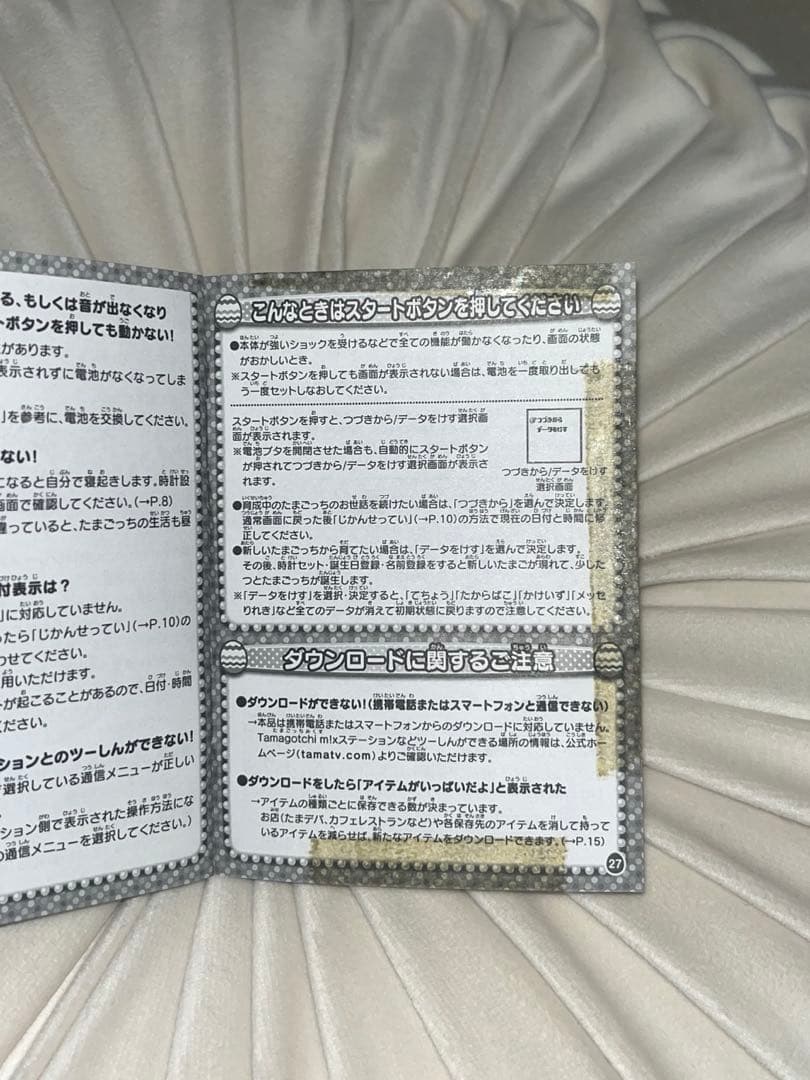 る、もしくは音が出なくなり
トボタンを押しても動かない!
があります。
表示されずに電池がなくなってしま
」を参考に、電池を交換してください。
ない!
になると自分で寝起きします。時計設
画面で確認してください。(→P.8)
違っていると、たまごっちの生活も昼
付表示は?
」に対応していません。
ったら「じかんせってい」(→P.10)の
わせてください。
用いただけます。
が起こることがあるので、日付・時間
ください。
ションとのツーしんができない!
選択している通信メニューが正しい
ション側で表示された操作方法にな
の通信メニューを選択してください。)
こんなときはスタートボタンを押してください
●本体が強いショックを受けるなどで全ての機能が働かなくなったり、画面の状態
がおかしいとき。
※スタートボタンを押しても画面が表示されない場合は、電池を一度取り出しても
う一度セットしなおしてください。
スタートボタンを押すと、つづきから/データをけす選択画
面が表示されます。
※電池ブタを開閉させた場合も、自動的にスタートボタン
が押されてつづきから/データをけす選択画面が表示さ
れます。
つづきから
データをけす
つづきから/データをけす
選択画面
●育成中のたまごっちのお世話を続けたい場合は、「つづきから」を選んで決定します。
通常画面に戻った後「じかんせってい」(→P.10)の方法で現在の日付と時間に修
正してください。
●新しいたまごっちから育てたい場合は、「データをけす」を選んで決定します。
その後、時計セット・誕生日登録・名前登録をすると新しいたまごが現れ、少した
つとたまごっちが誕生します。
※「データをけす」を選択・決定すると、「てちょう」「たからばこ」「かけいず」「メッセ
りれき」など全てのデータが消えて初期状態に戻りますので注意してください。
ダウンロードに関するご注意
●ダウンロードができない!(携帯電話またはスマートフォンと通信できない)
→本品は携帯電話またはスマートフォンからのダウンロードに対応していません。
Tamagotchi m!xステーションなどツーしんができる場所の情報は、公式ホー
ムページ(tamatv.com)よりご確認いただけます。
●ダウンロードをしたら「アイテムがいっぱいだよ」と表示された
→アイテムの種類ごとに保存できる数が決まっています。
お店(たまデパ、カフェレストランなど)や各保存先のアイテムを消して持って
いるアイテムを減らせば、新たなアイテムをダウンロードできます。(→P.15)
27